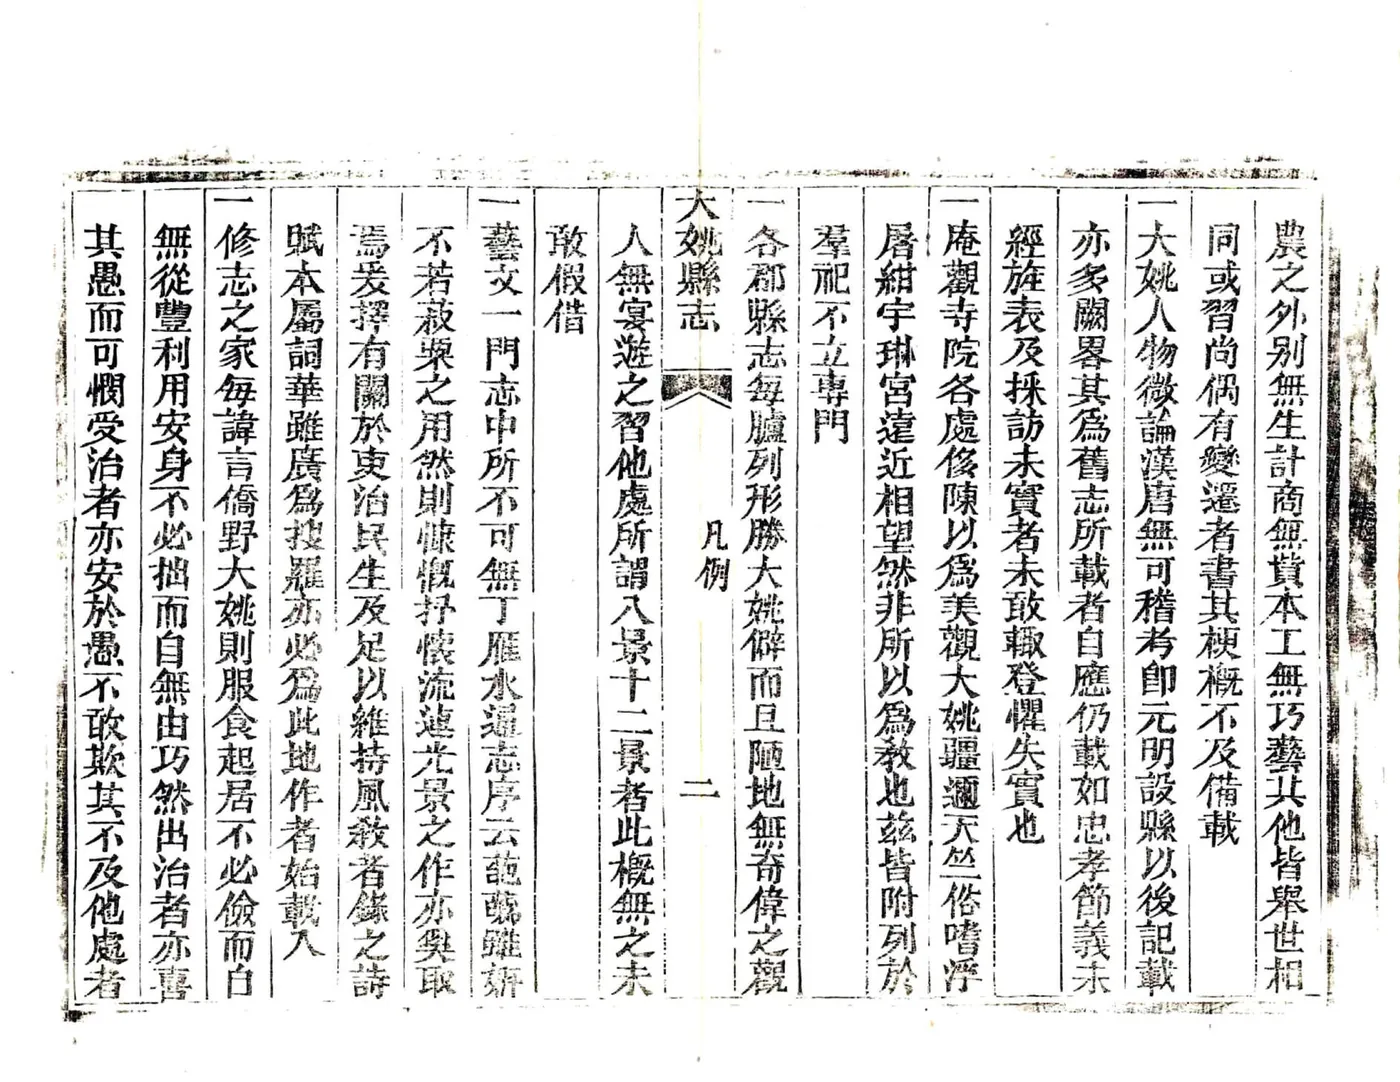 農之外別無生計商無貲本工無巧藝其他皆舉世相
同或習尚偶有變遷者書其梗槪不及備載
一大姚人物微論漢唐無可稽考卽元明設縣以後記載
亦多闕畧其爲舊志所載者自應仍載如忠孝節義未
經旌表及採訪未實者未敢輙登懼失實也
一庵觀寺院各處侈陳以爲美觀大姚疆邇天竺俗嗜浮
屠紺宇琳宮遠近相望然非所以爲教也茲皆附列於
羣祀不立專門
一各郡縣志每臚列形勝大姚僻而且陋地無奇偉之觀
大姚縣志 凡例 二
人無宴遊之習他處所謂八景十二景者此槪無之未
敢假借
一藝文一門志中所不可無丁雁水通志序云葩藻雖妍
不若菽粟之用然則慷慨抒懷流連光景之作亦奚取
焉爰擇有關於吏治民生及足以維持風教者錄之詩
賦本屬詞華雖廣爲搜羅亦必爲此地作者始載入
一修志之家每諱言僑野大姚則服食起居不必儉而自
無從豐利用安身不必拙而自無由巧然出治者亦喜
其愚而可憫受治者亦安於愚不敢欺其不及他處者